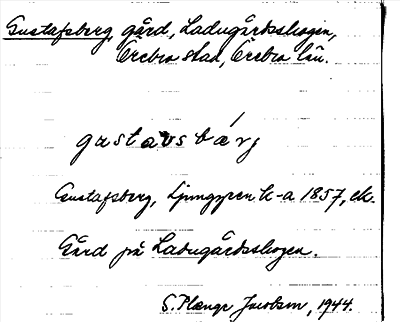 Gustafsberg, gård, Ladugårdsskogen,
Örebro stad, Örebro län.
gustavsbärj
Gustafsberg, Ljunggren k-a 1857, ek.
Gård på Ladugårdsskogen.
S. Plenge Jacobsen, 1944.